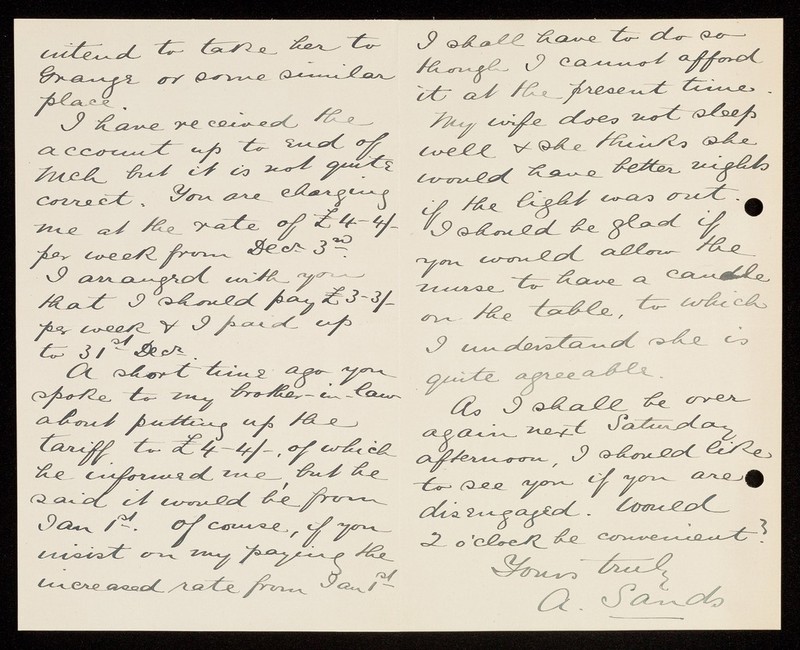 intend to take her to
Grange or some similar
place.
I have received the
account up to end of
Mch but it is not quite
correct. You are charging
me at the rate of £4-4/-
per week from Decr 3rd.
I arranged with you
that I should pay £3-3/-
per week & I paid up
to 31st Decr.
A short time ago you
spoke to my brother-in-law
about putting up the
tariff to £4-4/-, of which
he informed me, but he
said it would be from
Jan 1st. Of course, if you
insist on my paying the
increased rate from Jan 1st
I shall have to do so
though I cannot afford
it at the present time.
My wife does not sleep
well & she thinks she
would have better nights
if the light was out.
I should be glad if
you would allow the
nurse to have a candle
on the table, to which
I understand she is
quite agreeable.
As I shall be over
again next Saturday
afternoon, I should like
to see you if you are
disengaged. Would
2 o'clock be convenient?
Yours truly
A. Sands